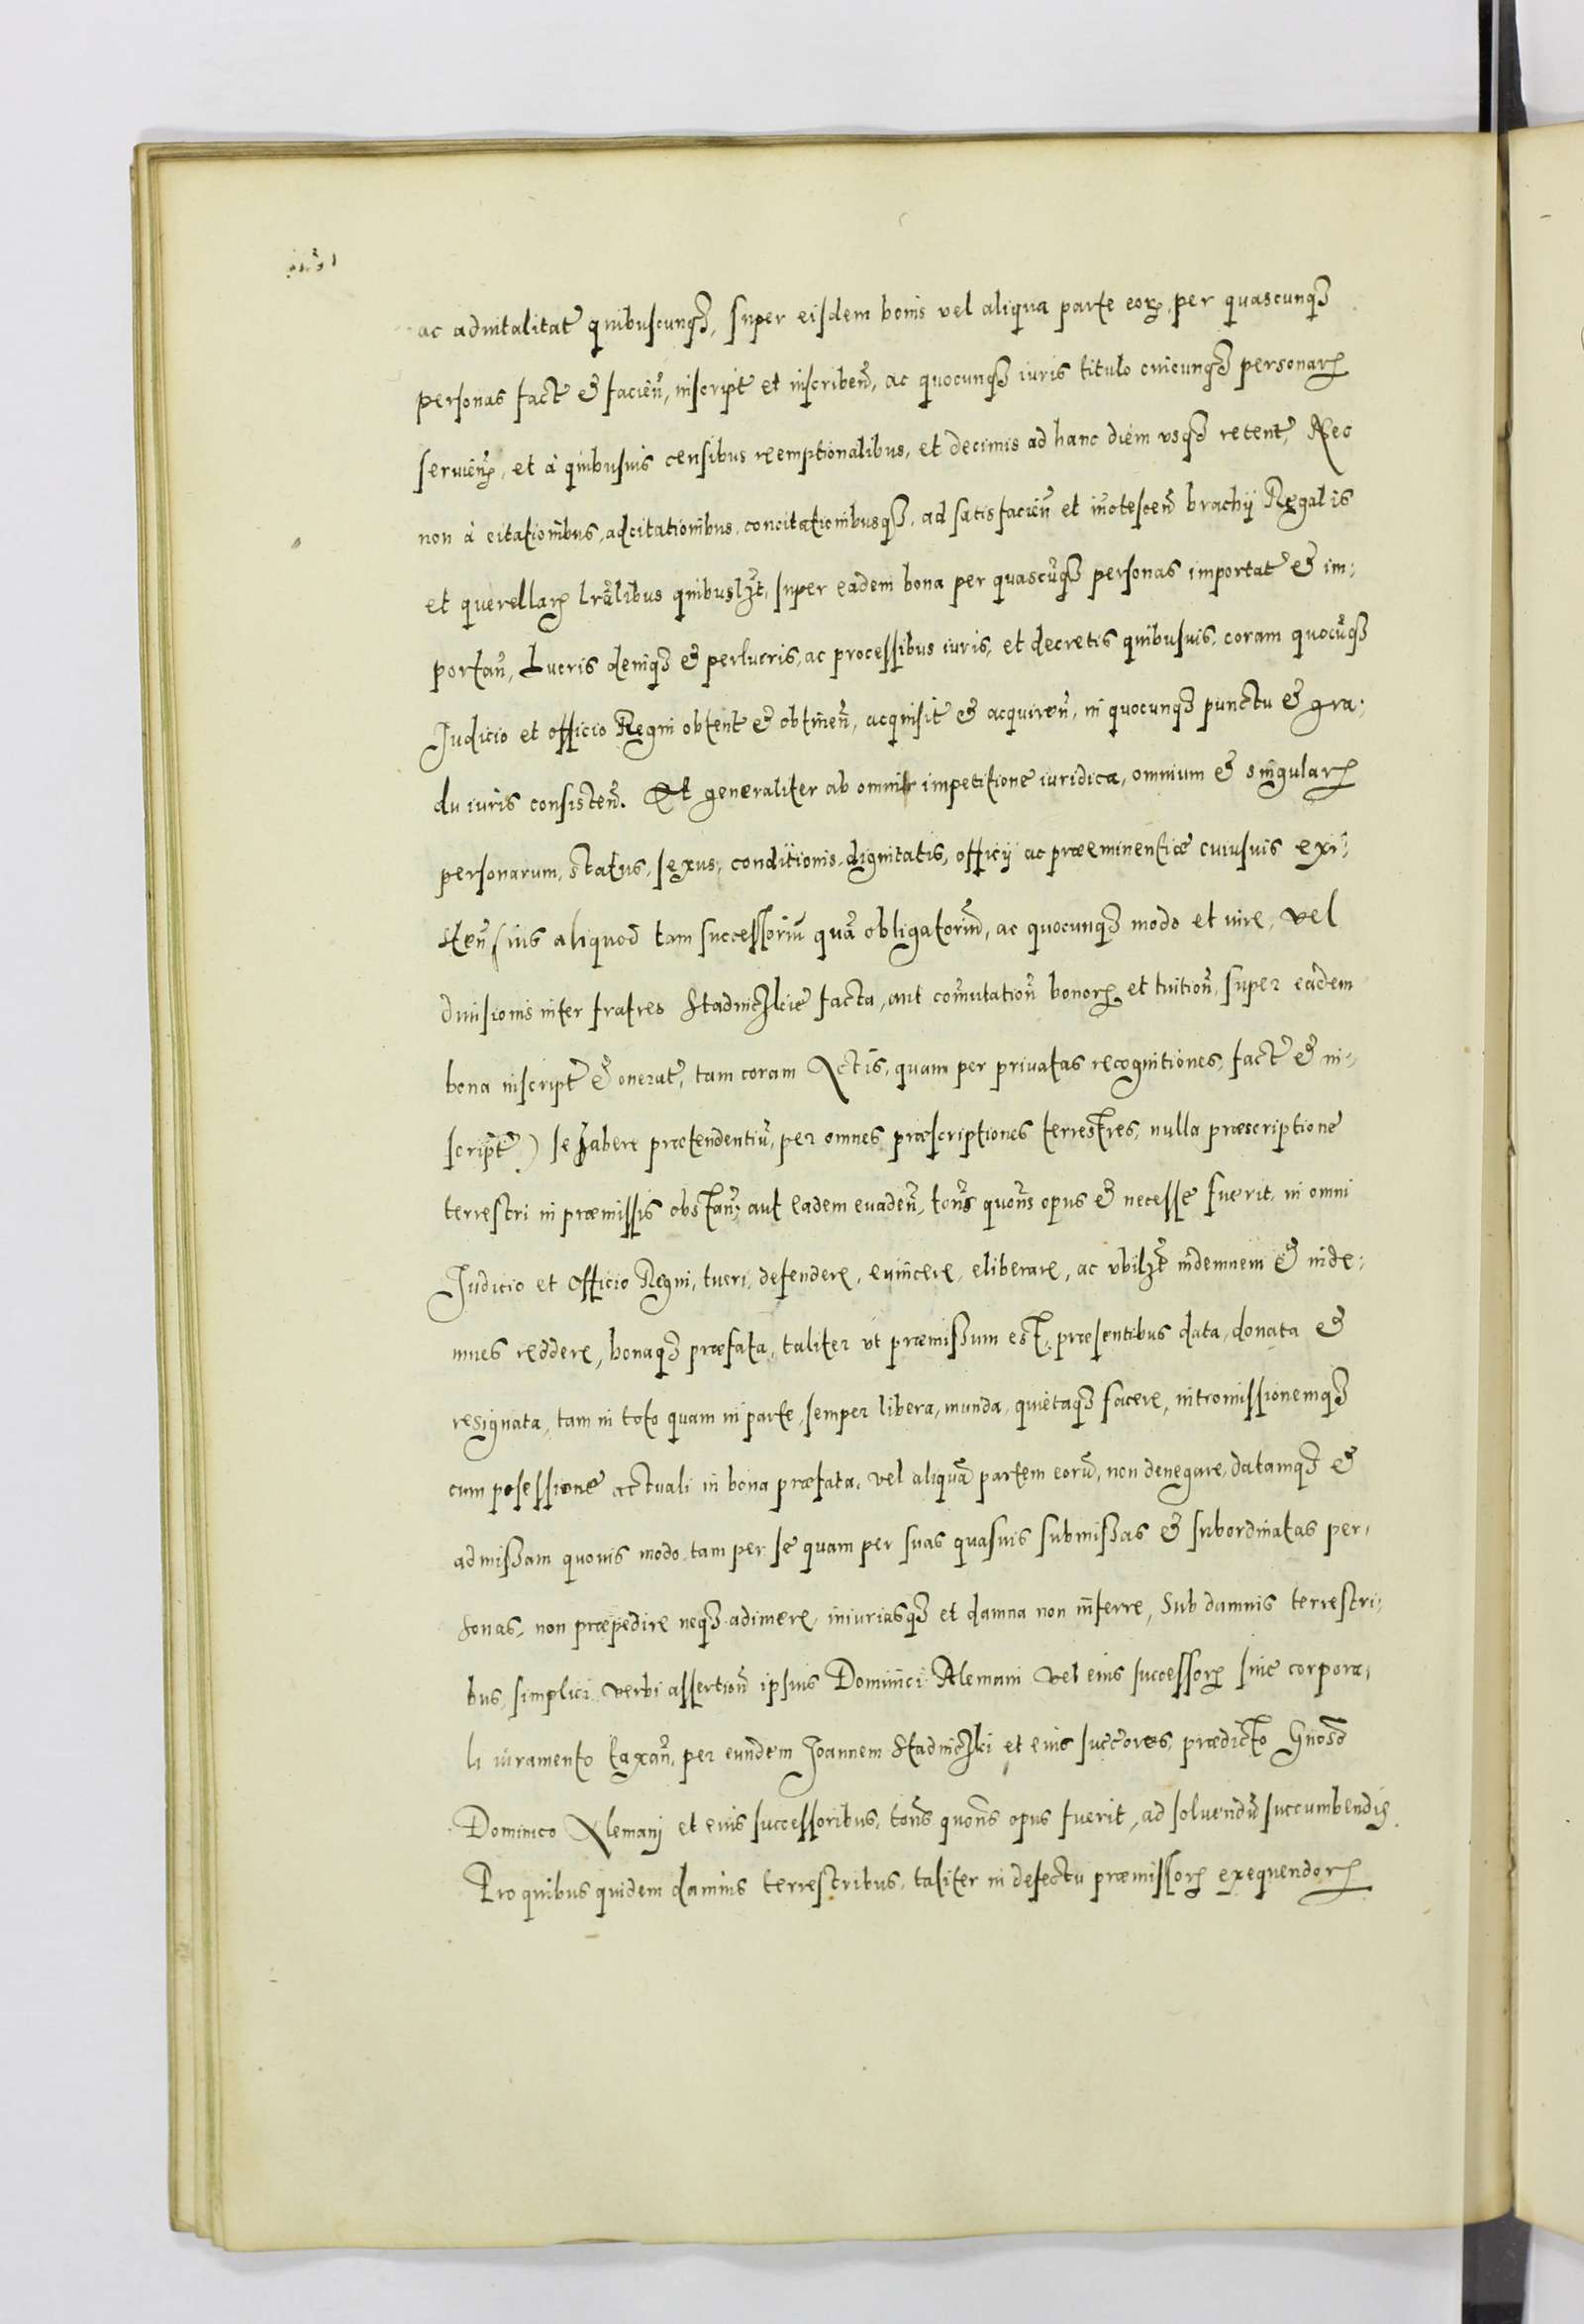 ac aduitalitat quibuscunq3, super eisdem bonis vel aliqua parte eoꝝ, per quascunq3
personas fact & facień, inscript et inscribeń, ac quocunq3 iuris titulo cuicunq3 personaꝝ
seruień, et à quibusuis censibus reemptionalibus, et decimis ad hanc diem vsq3 retent, Nec
non à citationibus, adcitationibus, concitationibusq3, ad satisfacień et inotesceń brachij Regalis
et querellaꝝ lrālibus quibuslꝫt, super eadem bona per quascūq3 personas importat & im:
portań, Lucris deniq3 & perlucris, ac processibus iuris, et decretis quibusuis, coram quocūq3
Judicio et officio Regni obtent & obtineń, acquisit & acquireń, in quocunq3 punctu & gra:
du iuris consisteń. Et generaliter ab omni impetitione iuridica, omnium & singulaꝝ
personarum, status, sexus, conditionis, dignitatis, officij ac præeminentiæ cuiusuis exi:
steń (ius aliquod tam successoriū quā obligatoriū, ac quocunq3 modo et iure, vel
diuisionis inter fratres Stadnickie facta, aut com̄utatioń bonoꝝ et tuitioń, super eadem
bona inscript & onerat, tam coram Actis, quam per priuatas recognitiones, fact & in:
script) se habere prætendentiū, per omnes præscriptiones terrestres, nulla præscriptione
terrestri in præmissis obstań, aut eadem euadeń, tońs quońs opus & necesse fuerit, in omni
Judicio et Officio Regni, tueri, defendere, euincere, eliberare, ac vbilꝫt indemnem & inde:
mnes reddere, bonaq3 præfata, taliter vt præmissum est, præsentibus data, donata &
resignata, tam in toto quam in parte, semper libera, munda, quietaq3 facere, intromissionemq3
cum posessione actuali in bona præfata, vel aliquā partem eorū, non denegare, datamq3 &
admissam quouis modo tam per se quam per suas quasuis submissas & subordinatas per:
sonas, non præpedire neq3 adimere, iniuriasq3 et damna non inferre, Sub damnis terrestri:
bus, simplici verbi assertioń ipsius Dominici Alemani vel eius successoꝝ sine corpora:
li iuramento taxań, per eundem Joannem Stadnicki et eius succōres, prædicto Gnoso
Dominico Alemanj et eius successoribus, tońs quońs opus fuerit, ad soluendū succumbendis.
Pro quibus quidem damnis terrestribus, taliter in defectu præmissoꝝ exequendoꝝ